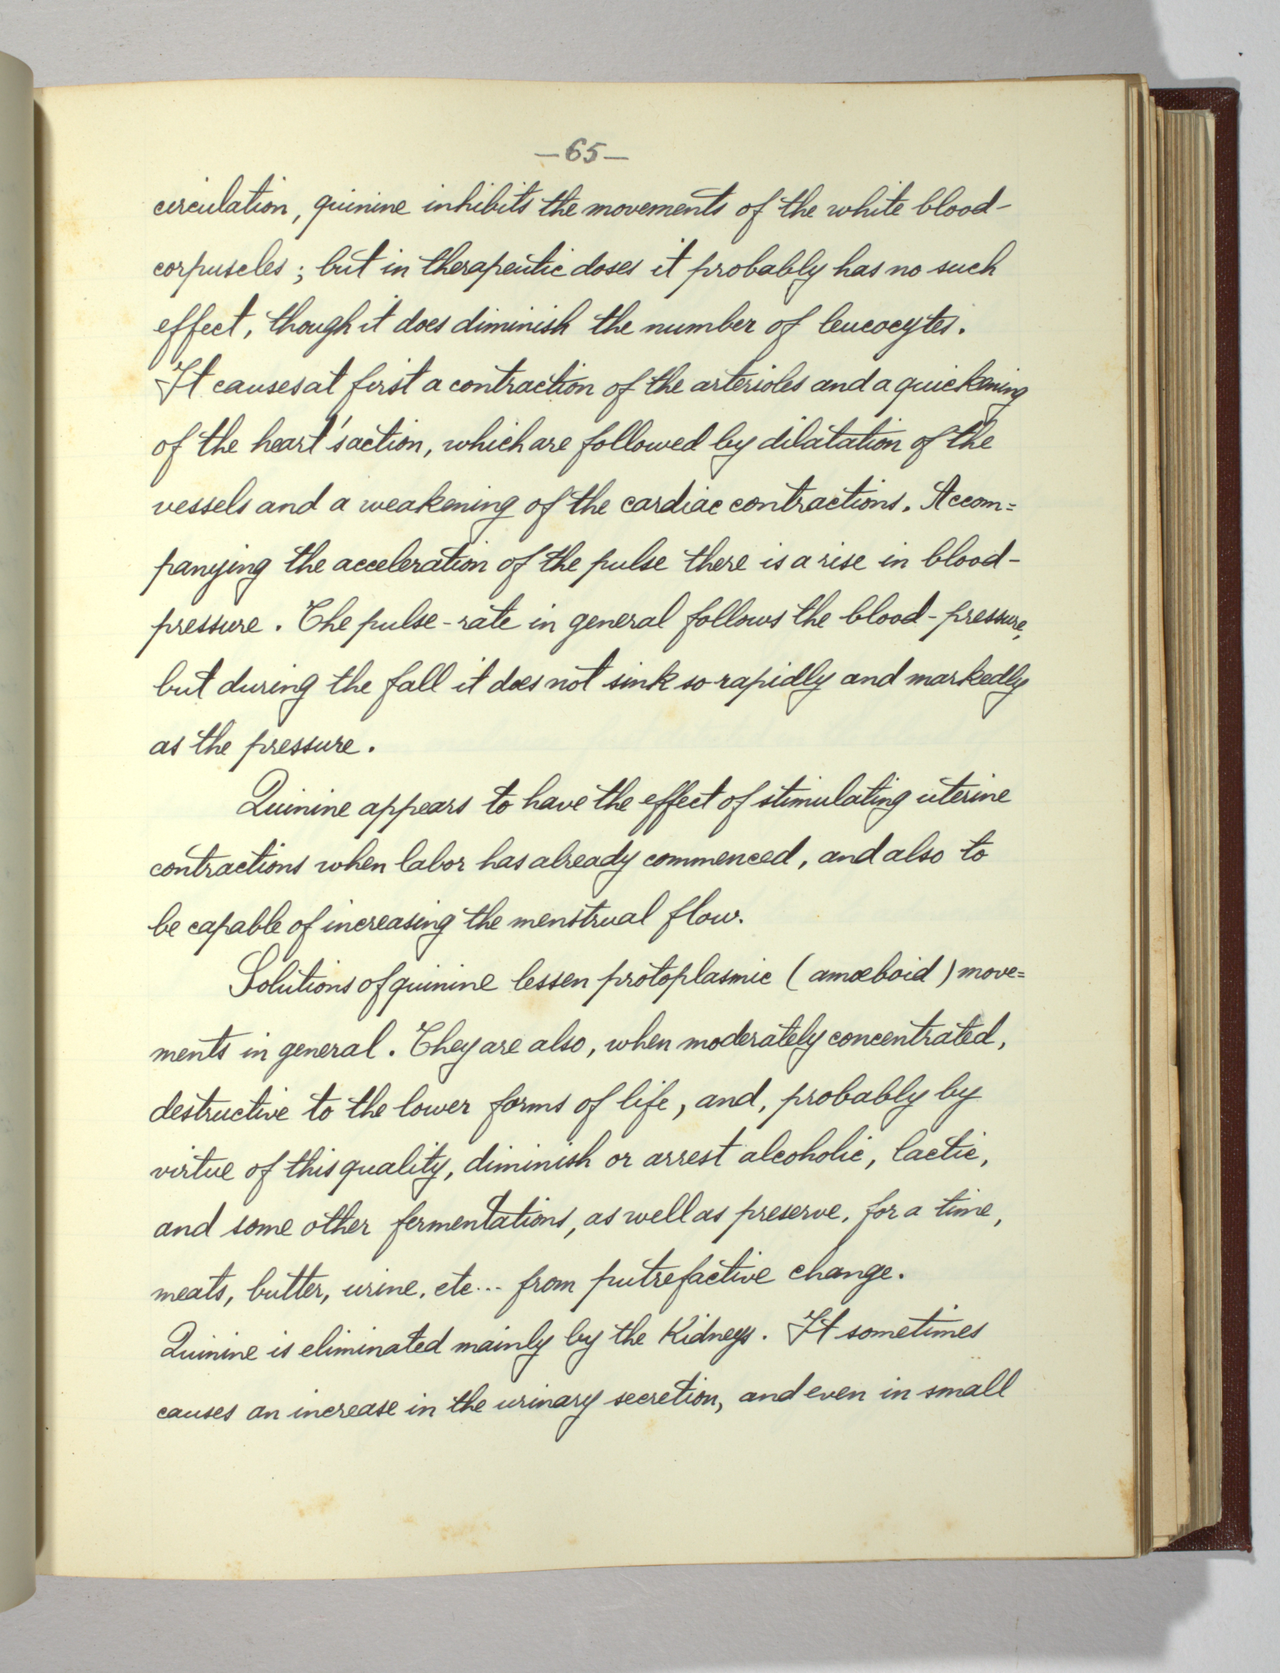 —65—
circulation, quinine inhibits the movements of the white blood-
corpuscles; but in therapeutic doses it probably has no such
effect, though it does diminish the number of leucocytes.
It causes at first a contraction of the arterioles and a quickening
of the heart's action, which are followed by dilatation of the
vessels and a weakening of the cardiac contractions. Accom=
panying the acceleration of the pulse there is a rise in blood-
pressure. The pulse-rate in general follows the blood-pressure,
but during the fall it does not sink so rapidly and markedly
as the pressure.
Quinine appears to have the effect of stimulating uterine
contractions when labor has already commenced, and also to
be capable of increasing the menstrual flow.
Solutions of quinine lessen protoplasmic (amœboid) move=
ments in general. They are also, when moderately concentrated,
destructive to the lower forms of life, and, probably by
virtue of this quality, diminish or arrest alcoholic, lactic,
and some other fermentations, as well as preserve, for a time,
meats, butter, urine, etc... from putrefactive change.
Quinine is eliminated mainly by the Kidneys. It sometimes
causes an increase in the urinary secretion, and even in small